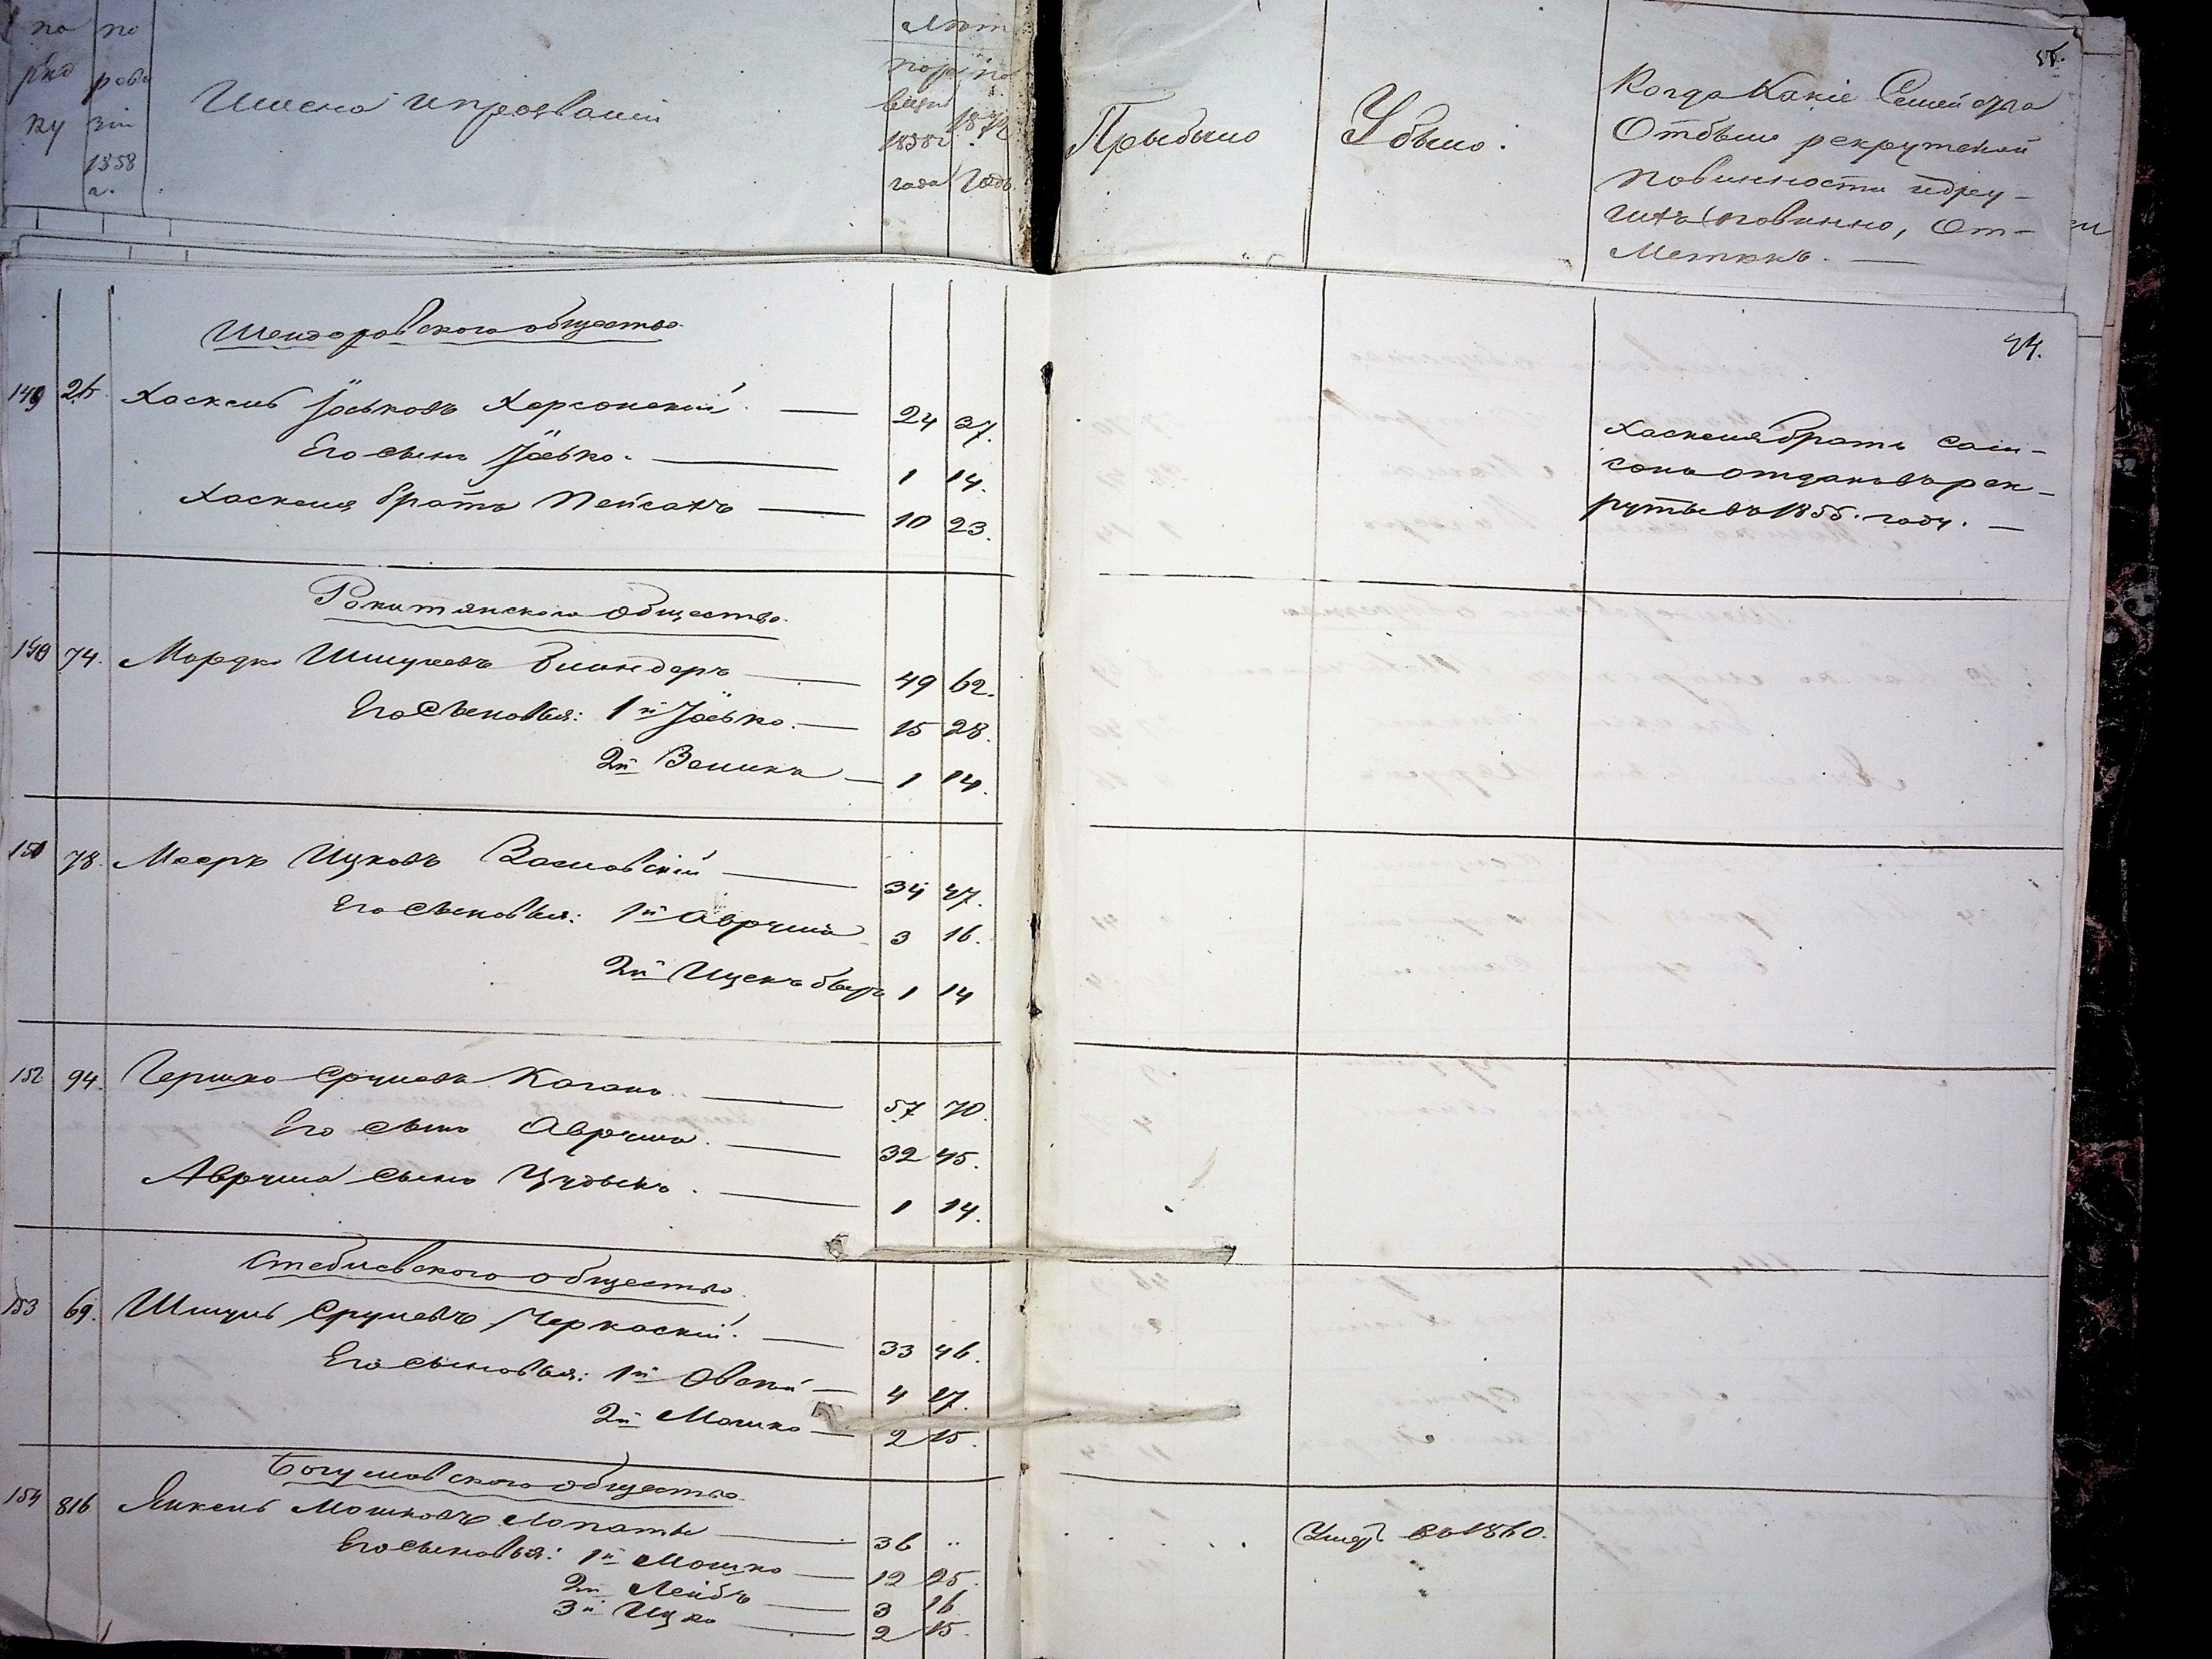 по по Лет
рид реви поре по
ку зіи Имена и прозваніи визіи 1872
1858 1858
г. года Года
Прыбыло Убыло:
Когда Какіе Семейства
Отбыли рекрутской
Повинности
повинно, От-
Меткъ. —
Шендеровского общества.
44.
149 25. Хаскель Іоськовъ Херсонскій — 24 37.
Его сынъ Іосько. — 1 14.
Хаскеля братъ Пейсахъ — 10 23.
Хаскеля братъ Сам-
сонъ отданъ въ рек-
руты въ 1855. году. —
Рокитянского Общества.
150 74. Мордко Шмулевъ Блиндеръ — 49 62.
Его Сыновья: 1й Іосько. — 15 28.
2й Зеликъ — 1 14.
151 78. Мееръ Ицковъ Заславскій — 34 47.
Его Сыновья: 1й Аврумъ 3 16.
2й Ицекъ Беръ 1 14
152 94. Гершко Срулевъ Коганъ. — 57 70.
Его Сынъ Аврумъ. — 32 45.
Аврума Сынъ — 1 14.
Стеблевского общества.
153 69. Шмуль Срулевъ Черкаскій. — 33 46.
Его Сыновья: 1й Овсій — 4 17.
2й Мошко — 2 15.
Богуславского общества.
154 816 Янкель Мошковъ Лопаты — 36 „
Умеръ въ 1860.
Его Сыновья: 1й Мошко — 12 25.
2й Лейбъ — 3 16
3й Ицко — 2 15.